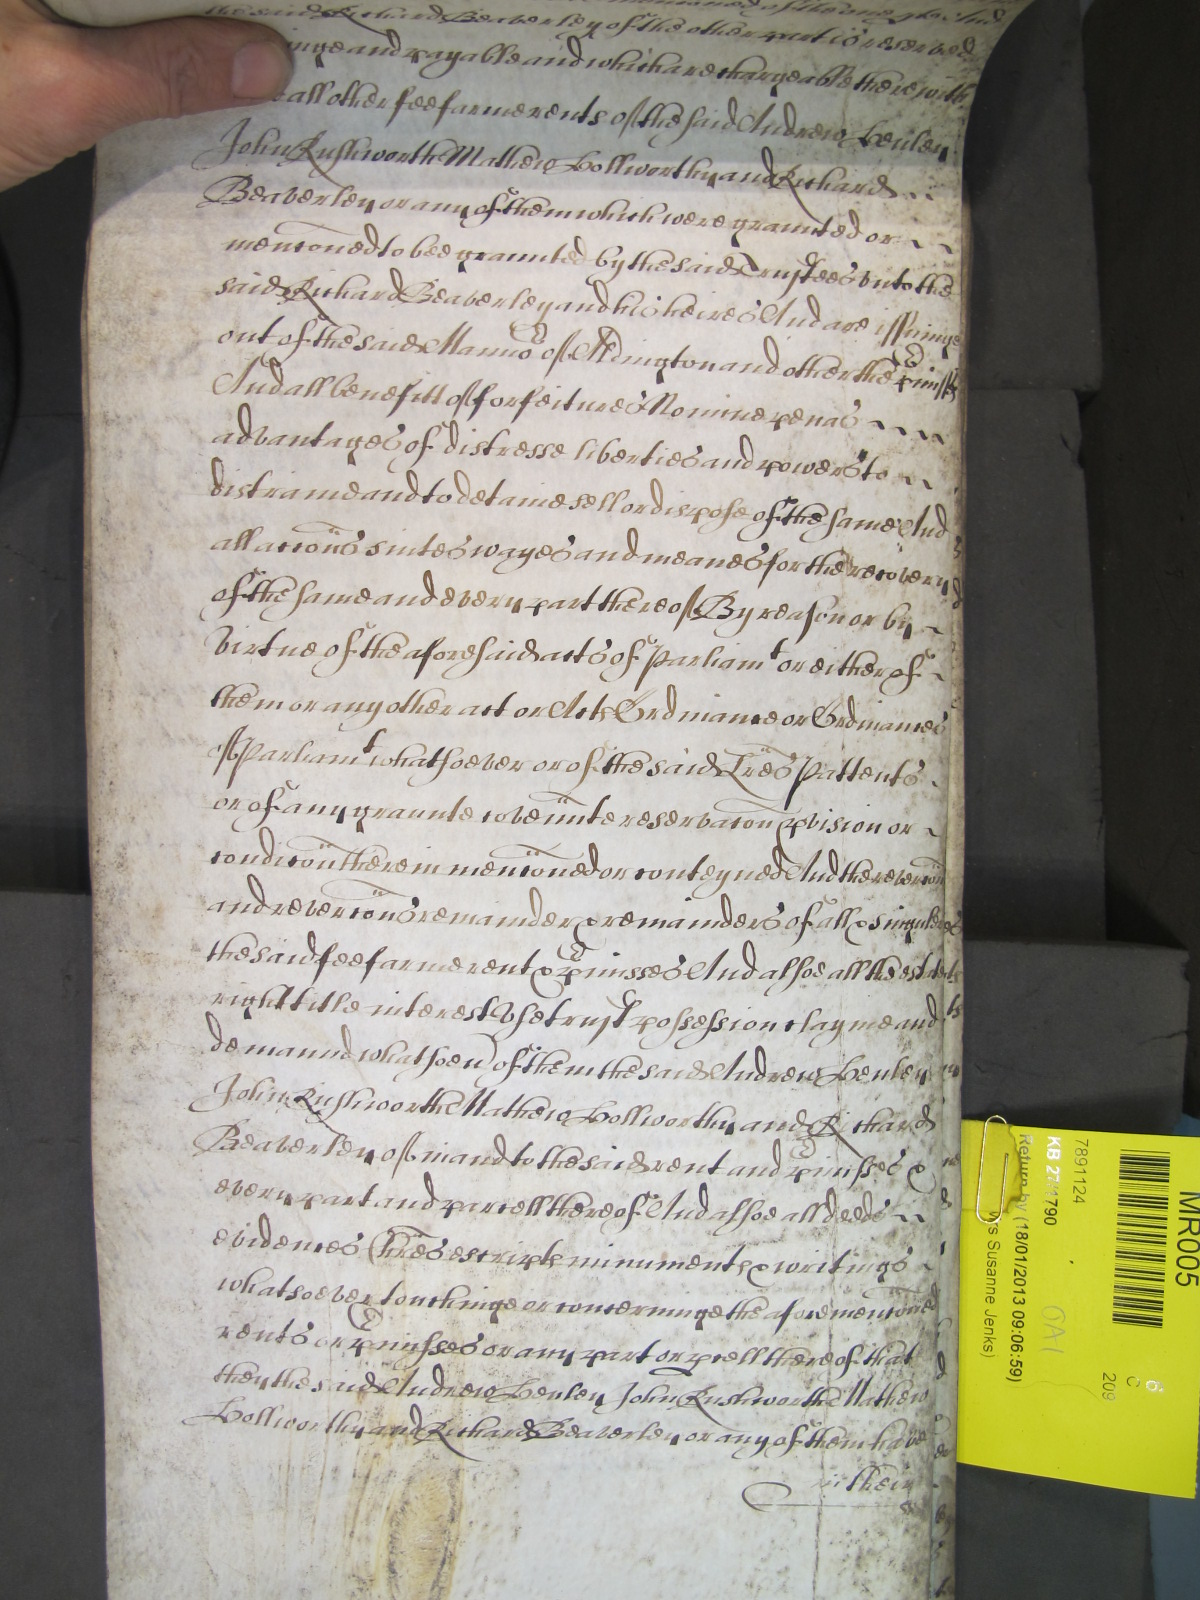 the said Richard Beaverley of the other part is reserved
inge and payable and which are chargeable therewith
all other fee farme rents of the said Andrew Henley
John Rushworth Mathew Hollworthy and Richard
Beaverley or any of them which were graunted or
mencõned to bee graunted by the said Trustees unto the
said Richard Beaverley and his heires And are issuinge
out of the said Mannor of Addington and other the pmisses
And all benefitt of forfeitures Nomine penas
advantages of distresse liberties and powers to
distraine and to detaine sell or dispose of the same And
all accõns suites wayes and meanes for the recovery
of the same and every part thereof By reason or by
virtue of the aforesaid acts of Parliamt or either of
them or any other act or Acts Ordinance or Ordinances
of Parliamt whatsoever or of the said Lres Pattents
or of any graunte covennte reservacon pvision or
condicõn therein mencõned or conteyned And the revercõn
and revercõns remainder & remainders of all & singuler
the said fee farme rent & pmisses And alsoe all the estate
right title interest Use trust possession clayme and
demaund whatsoevr of them the said Andrew Henley
John Rushworth Mathew Hollworthy and Richard
Beaverley of in and to the said rent and pmisses &
every part and parcell thereof And alsoe all deeds
evidences lres escripts minuments & writings
whatsoever touchinge or concerninge the aforemencõned
rents or pmisses or any part or pcell thereof that
they the said Andrew Henley John Rushworth Mathew
Hollworthy and Richard Beaverley or any of them have
in their
MR005
7891124
KB 27/1790
Return by (18/01/2013 09:06:59)
Susanne Jenks)
6
C
209